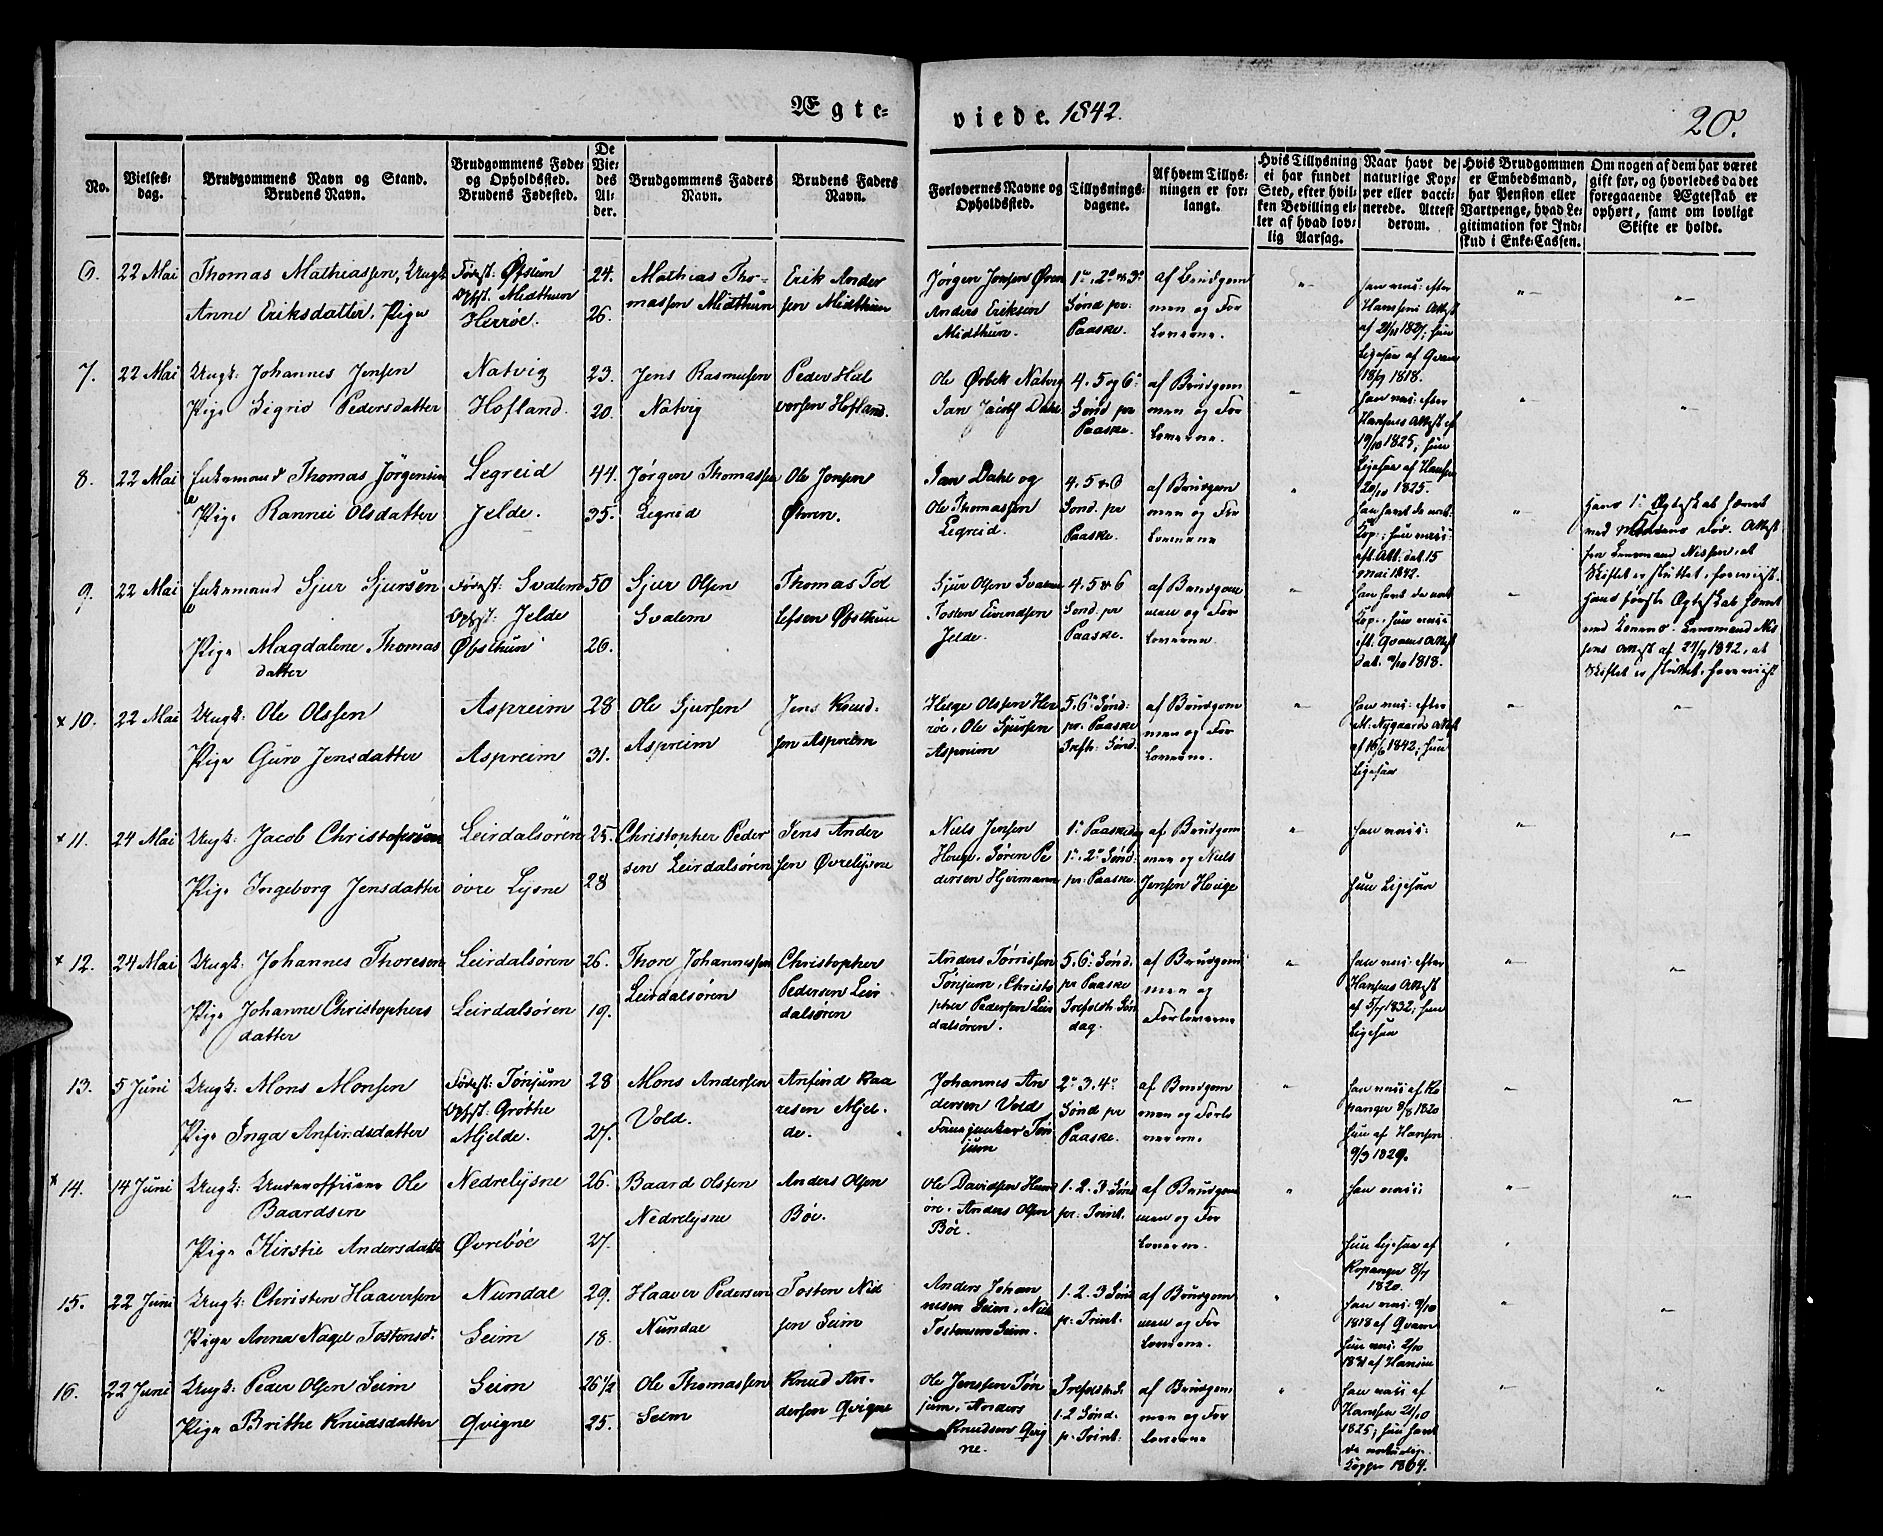 Ægte-
viede. 1842.
20.
No.
Vielses-
dag.
Brudgommens Navn og Stand.
Brudens Navn.
Brudgommens Føde-
og Opholdssted.
Brudens Fødested.
De
Vie-
des
Al-
der.
Brudgommens Faders
Navn.
Brudens Faders
Navn.
Forlovernes Navne og
Opholdssted.
Tillysnings-
dagene.
Af hvem Tillys-
ningen er for-
langt.
Hvis Tillysning
ei har fundet
Sted, efter hvil-
ken Bevilling el-
ler af hvad lov-
lig Aarsag.
Naar havt de
naturlige Kop-
per eller vacci-
nerede. Attest
derom.
Hvis Brudgommen
er Embedsmand,
har Pension eller
Vartpenge, hvad Le-
gitimation for Ind-
skud i Enke-Cassen.
Om nogen af dem har været
gift før, og hvorledes da det
foregaaende Ægteskab er
ophørt, samt om lovligt
Skifte er holdt.
6. 22 Mai Thomas Mathiassen, Ungk:
Anne Eriksdatter, Pige
Fødest: Øfstun
Opst: Midthun
Herrøe.
24.
26.
Mathias Tho-
massen Midthun
Erik Ander
sen Midthun
Jørgen Jonsen Øren
Anders Eriksen
Midthun.
1e, 2e & 3e
Sønd pr:
Paaske.
af Brudgom
men og For
loverne.
han vac: efter
Hansens Attest
af 21/11 1827; hun
Ligesaa af Qvam
18/9 1818.
7. 22 Mai Ungk: Johannes Jensen
Pige Sigrid Pedersdatter
Natvig
Hofland.
23.
20.
Jens Rasmusen
Natvig
Peder Hal
vorsen Hofland.
Ole Ørbek Natvig
Jan Jacob Dahl
4. 5 og 6e
Sønd pr
Paaske.
af Brudgom
men og For
loverne.
han vac: efter
Hansens Attest af
19/10 1825; hun
Ligesaa af Hansen
20/10 1825.
8. 22 Mai Enkemand Thomas Jörgensen
Pige Rannei Olsdatter
Legreid
Jelde.
44.
35.
Jørgen Thomassen
Legreid
Ole Jonsen
Øhren.
Jan Dahl og
Ole Thomassen
Legreid.
4. 5 & 6
Sond. pr
Paaske.
af Brudgom
men og For
loverne
han havt de nat:
Kop.; hun vac:
eft. Att. dat. 15
mai 1842.
Hans 1e Ægteskab hævet
ved Konens Død. Attest
fra Lensmand Nissen, at
Skiftet er sluttet, foreviist.
9. 22 Mai Enkemand Sjur Sjursön
Pige Magdalene Thomas
datter
Fødest: Svalem
Opst: Jelde
Øfsthun
50
26.
Sjur Olsen
Svalem
Thomas Tol
lefsen Øfsthun
Sjur Olsen Svalem
Tosten Eivindsen
Jelde.
4. 5 & 6
Sønd. pr
Paaske.
af Brudgom
men og For
loverne.
han havt de nat:
Kop., hun vac:
eft. Qvams Attest
dat. 9/10 1818.
Hans første Ægteskab hævet
ved Konens. Lensmand Nis
sens Attest af 27/4 1842, at
Skiftet er sluttet, foreviist
x 10. 22 Mai Ungk: Ole Olssen
Pige Guro Jensdatter
Aspreim
Aspreim
28
31.
Ole Sjursen
Aspreim
Jens Knud-
sen Aspreim
Helge Olssen Her
röe, Ole Sjursen
Aspreim
5. 6e Sønd:
pr. Paaske
Trefh: Sønd.
af Brudgom
men og For
loverne.
han vac: efter
M: Nygaards Attest
af 16/6 1842; hun
Ligesaa
x 11. 24 Mai Ungk: Jacob Christophersen
Pige Ingeborg Jensdatter
Leirdalsören
övre Lysne
25.
28
Christopher Peder
sen Leirdalsören
Jens Ander
sen Øvrelysne
Niels Jensen
Houge, Sören Pe
dersen Hjermann
1e Paaskedag
1e, 2e Sönd.
pr. Paaske
af Brudgom
men og Niels
Jensen Houge
han vac:
hun Ligesaa
x 12. 24 Mai Ungk: Johannes Thoresen
Pige Johanne Christophers
datter
Leirdalsören
Leirdalsören
26.
19.
Thore Johannessen
Leirdalsören
Christopher
Pedersen Leir
dalsören
Anders Törrissen
Tönjum, Christo
pher Pedersen Leir
dalsören.
5. 6e Sønd.
pr Paaske
Trefoldh: Sön
dag.
af Brudgom
men og
Forloverne
han vac: efter
Hansens Attest
af 5/7 1832; hun
Ligesaa
13. 5 Juni Ungk: Mons Monsen
Pige Inga Anfindsdatter
Fødest: Tönjum
Opst: Gröthe
Mjelde.
28
27.
Mons Andersen
Vold.
Anfind Baa
resen Mjel-
de.
Johannes An
dersen Vold
Tön
jum
2e 3. 4e
Sønd pr
Paaske.
af Brudgom
men og Forlo
verne.
han vac: af Ko
panger 8/8 1820
hun af Hansen
9/3 1829.
x 14. 14 Juni Ungk: Underofficeer Ole
Baardsen
Pige Kirstie Andersdatter
Nedrelysne
Øvrebøe
26.
27.
Baard Olsen
Nedrelysne
Anders Olsen
Böe.
Ole Davidsen Hund
öre, Anders Olsen
Böe.
1. 2. 3 Sönd
pr: Trint.
af Brudgom
men og For
loverne.
han vac:
hun Ligesaa af
Kopanger 8/7
1820.
15. 22 Juni Ungk: Christen Haaversen
Pige Anna Nagel Tostensd:
Nundal
Seim
29.
18.
Haaver Pedersen
Nundal
Tosten Niel
sen Seim
Anders Johan
nesen Seim, Niels
Tostensen Seim.
1. 2. 3 Sønd
pr Trint.
af Brudgom
men og For
loverne.
han vac: 9/10
1818 af Qvam
hun vac: 2/10
1831 af Hansen
16. 22 Juni Ungk: Peder Olsen Seim
Pige Brithe Knudsdatter
Seim
Qvigne
26 1/2
25.
Ole Thomassen
Seim
Knud An-
dersen Qvigne
Ole Jenssen Tön
jum, Anders
Knudsen Qvig
ne.
Trefoldh: S.
1. 2 Sønd.
p. Trint.
af Brudgom
men og For
loverne
han vac: af
Hansen 21/10
1825; hun havt
de naturlige
Kopper 1804.